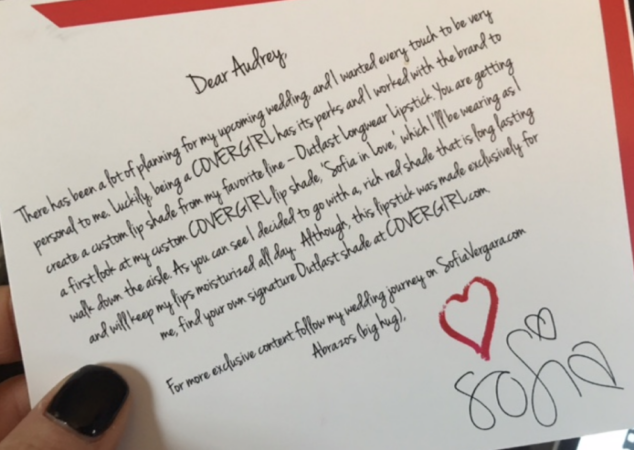 Dear Audrey,
There has been a lot of planning for my upcoming wedding, and I wanted every touch to be very
personal to me. Luckily, being a COVERGIRL has its perks and I worked with the brand to
create a custom lip shade from my favorite line – Outlast Longwear Lipstick. You are getting
a first look at my custom COVERGIRL lip shade, 'Sofia in Love,' which I'll be wearing as I
walk down the aisle. As you can see I decided to go with a, rich red shade that is long lasting
and will keep my lips moisturized all day. Although, this lipstick was made exclusively for
me, find your own signature Outlast shade at COVERGIRL.com.
For more exclusive content follow my wedding journey on SofiaVergara.com
Abrazos (big hug),
Sofia